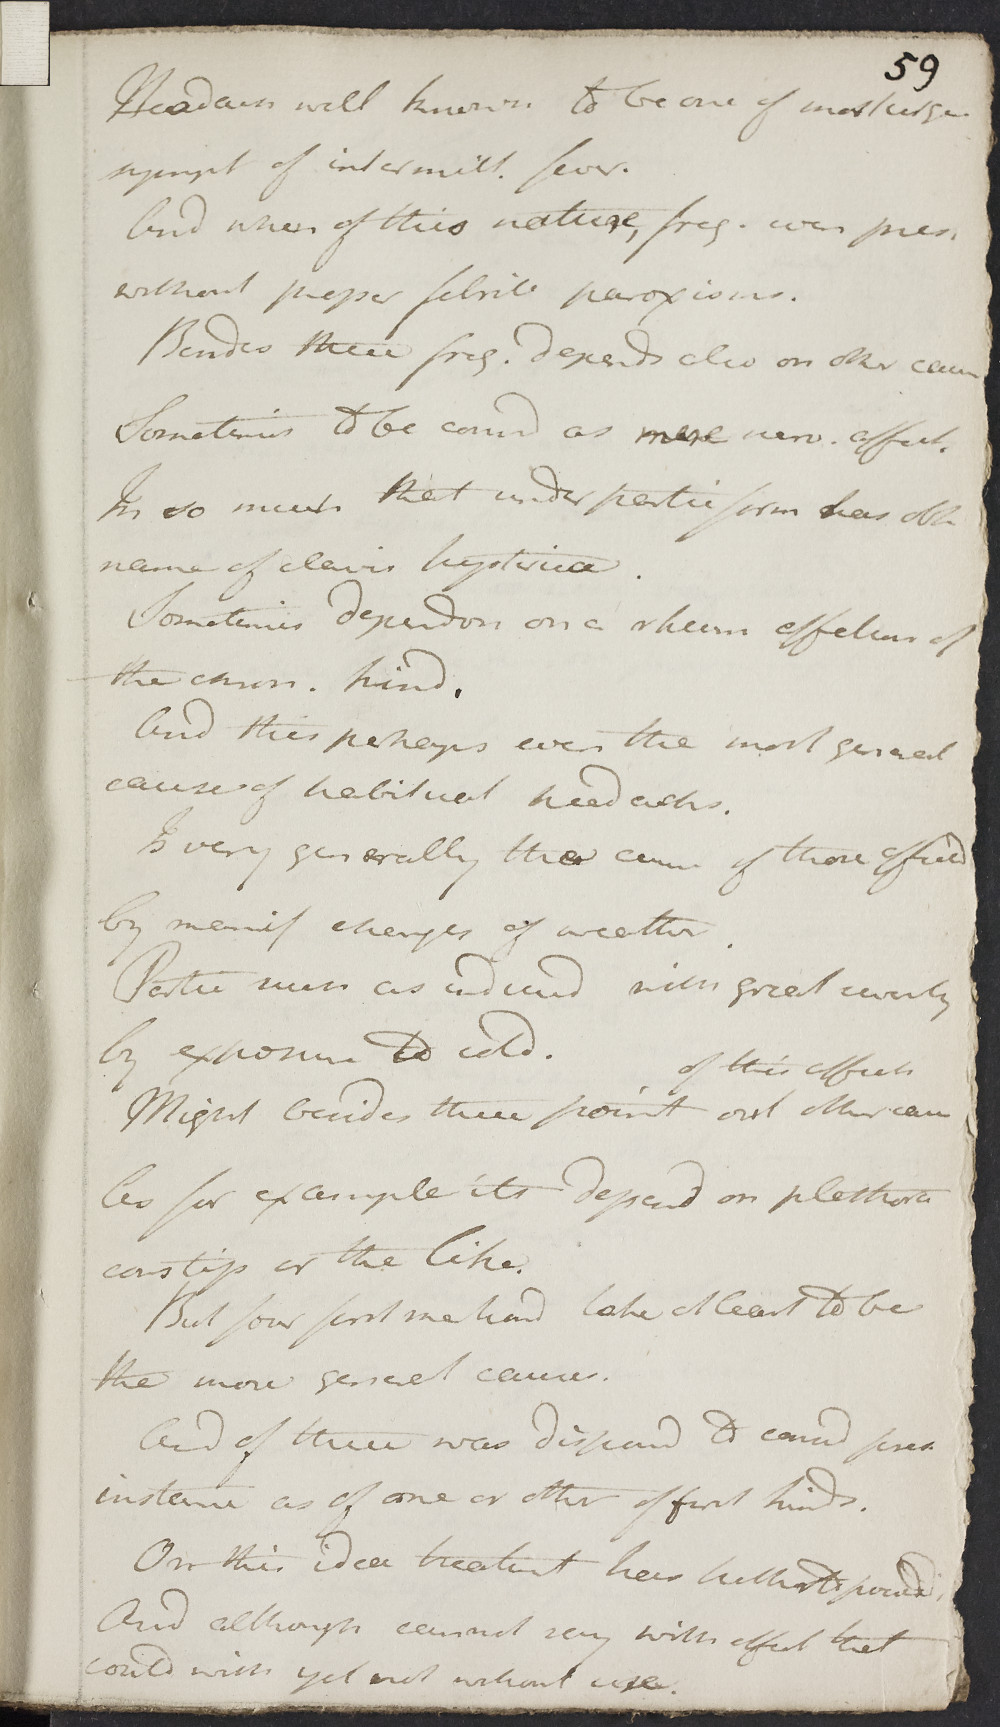 59
Headach well known to be one of most urgen
sympt of intermitt. fever.
And when of this nature, freq. even pres.
without proper febrile paroxisms.
Besides these freq. depends also on other caus
Sometimes to be consid as mere nerv. affect.
In so much that under partic form has obt
name of clavis hysterica.
Sometimes dependen on a rheum affection of
the chron. kind.
And this perhaps even the most general
cause of habitual headachs.
Is very generally the cause of those affected
by manif changes of weather.
Partic such as induced with great severity
by exposure to cold.
of this affect
Might besides these point out other cau
As for example its depend on plethora
constip or the like.
But four first mentiond take at least to be
the more general causes.
And of these was disposed to consid pres.
instance as of one or other of first kinds.
On this idea treatment has hitherto proceed.
And although cannot say with effect that
could wish yet not without use.